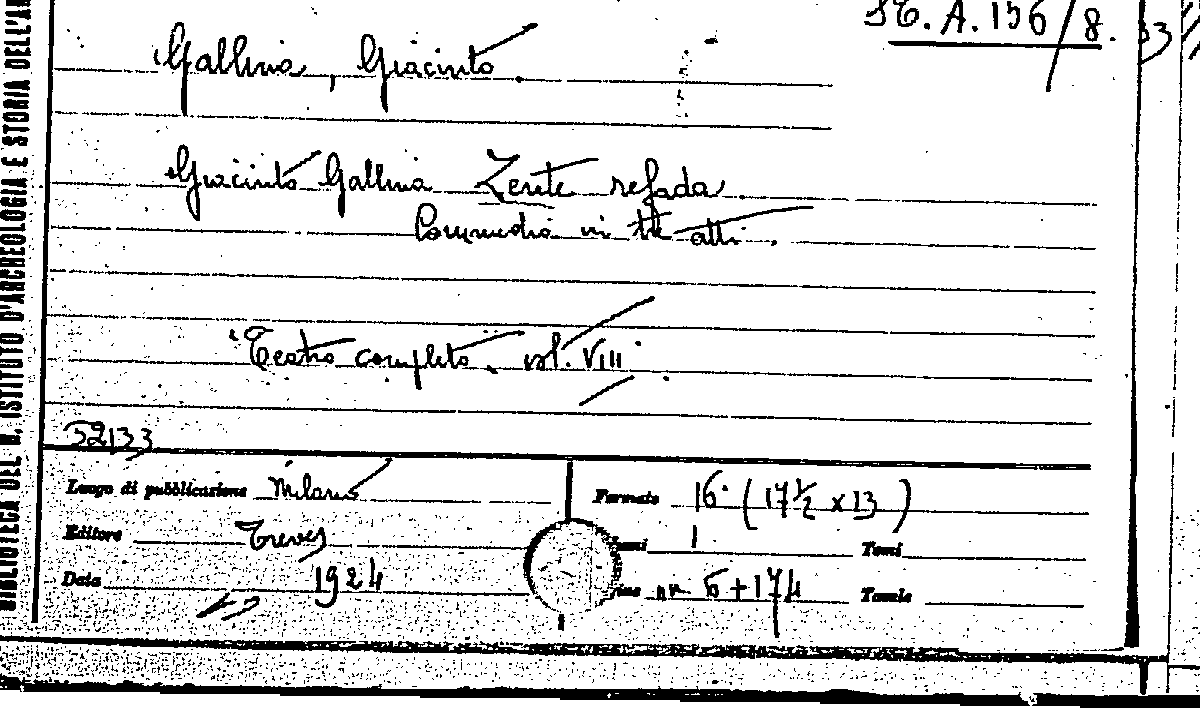 ST. A. 156/8.
Gallina, Giacinto.
Giacinto Gallina Zente refada
Commedia in tre atti.
"Teatro completo. vol. VIII
52133
Luogo di pubblicazione Milano
Formato 16° (17½ x 13)
Editore Treves
1
Tomi
Data 1924
nn. 6+174
Tavole
BIBLIOTECA DEL R. ISTITUTO D'ARCHEOLOGIA E STORIA DELL'AR